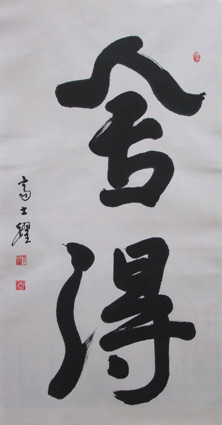 舍得
高士耀